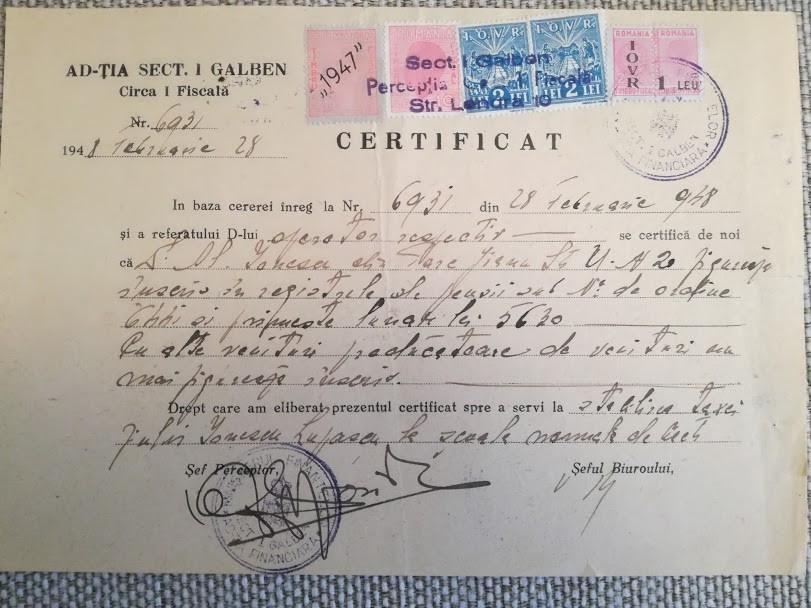 AD-ȚIA SECT. I GALBEN
Circa I Fiscală
Nr. 6931
1948 februarie 28
„1947”
ROMANIA
I.O.V.R.
2 LEI
I.O.V.R.
2 LEI
ROMANIA
ROMANIA
IOVR
1 LEU
Sect. I Galben
Percepția I Fiscală
Str. Londra 10
I GALBEN
FINANCIARA
CERTIFICAT
In baza cererei înreg la Nr. 6931 din 28 februarie 948
și a referatului D-lui operator respectiv se certifică de noi
că Ionescu din figurează
înscris în registrele de pensii sub No de ordine
6441 și primește lunar lei 5630
Cu alte venituri producătoare de venituri nu
mai figurează înscris.
Drept care am eliberat prezentul certificat spre a servi la stabilirea taxei
fiului Ionescu la scoala normala de
Șef Perceptor,
Șeful Biuroului,
I GALBEN
FINANCIARA